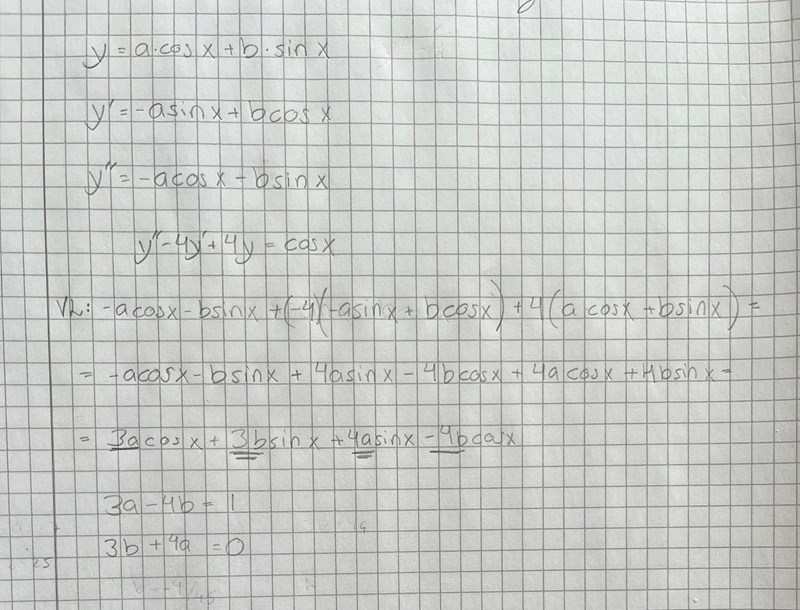 y = a·cos x + b · sin x
y' = -asinx + bcosx
y'' = -acosx - bsinx
y'' - 4y' + 4y = cosx
VL: -acosx - bsinx + (-4)(-asinx + bcosx) + 4(a cosx + bsinx) =
= -acosx - bsinx + 4asinx - 4bcosx + 4acosx + 4bsinx =
= 3acosx + 3bsinx + 4asinx - 4bcosx
3a - 4b = 1
3b + 4a = 0